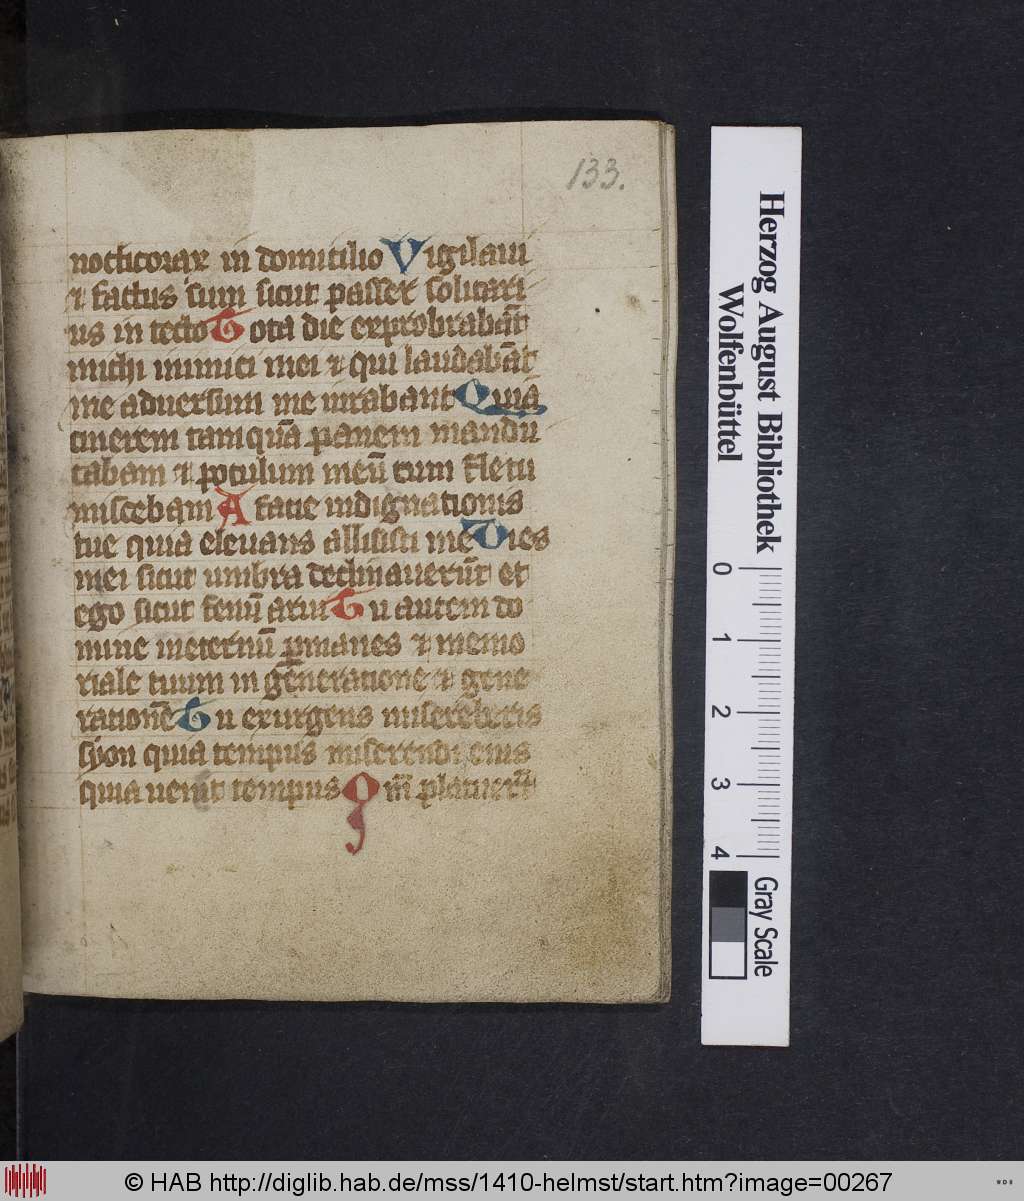 133.
nocticorax in domicilio Vigilaui
et factus sum sicut passer solitari
us in tecto Tota die exprobrabāt
michi inimici mei et qui laudabāt
me aduersum me iurabant Quia
cinerem tamquā panem mandu
cabam et poculum meū cum fletu
miscebam A facie indignationis
tue quia eleuans allisisti me Dies
mei sicut umbra declinauerūt et
ego sicut fenū arui Tu autem do
mine ineternū ꝑmanes et memo
riale tuum in gēneratione et gene
rationē Tu exurgens misereberis
syon quia tempus miserendi eius
quia uenit tempus Qm̄ placuer̄t
Herzog August Bibliothek
Wolfenbüttel
0 1 2 3 4
Gray Scale
© HAB http://diglib.hab.de/mss/1410-helmst/start.htm?image=00267